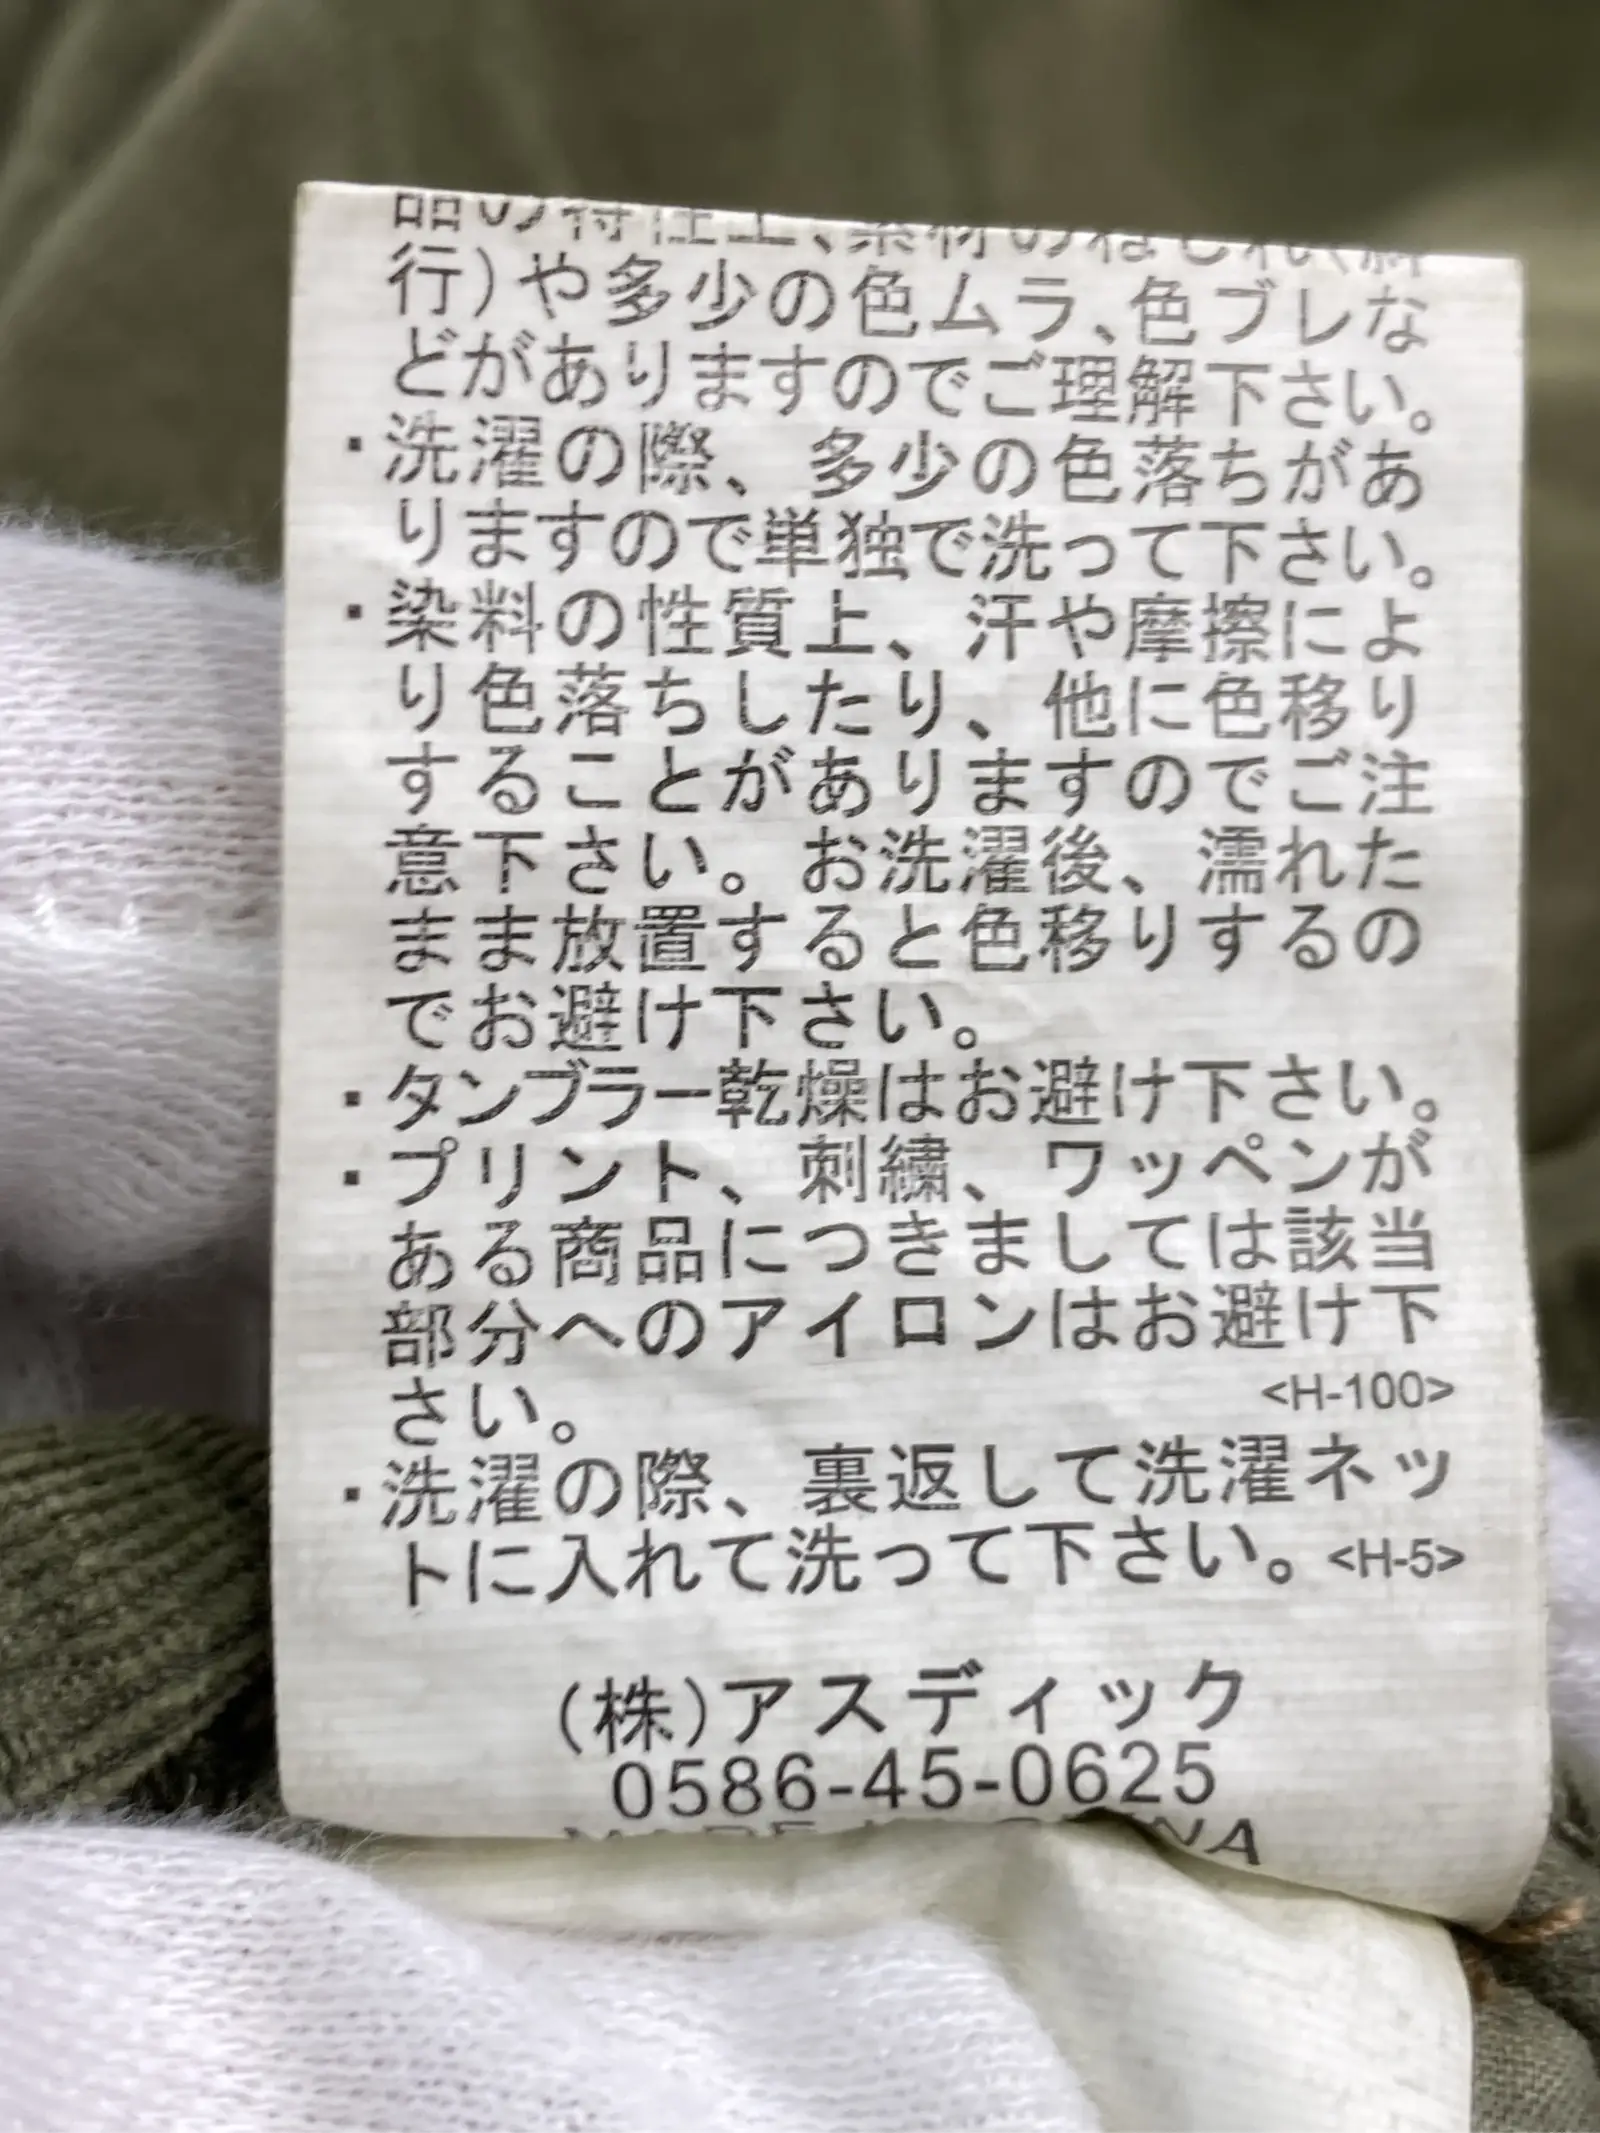 品の特性上、素材のねじれ(斜
行)や多少の色ムラ、色ブレな
どがありますのでご理解下さい。
・洗濯の際、多少の色落ちがあ
りますので単独で洗って下さい。
・染料の性質上、汗や摩擦によ
り色落ちしたり、他に色移り
することがありますのでご注
意下さい。お洗濯後、濡れた
まま放置すると色移りするの
でお避け下さい。
・タンブラー乾燥はお避け下さい。
・プリント、刺繍、ワッペンが
ある商品につきましては該当
部分へのアイロンはお避け下
さい。 <H-100>
・洗濯の際、裏返して洗濯ネッ
トに入れて洗って下さい。<H-5>
(株)アスディック
0586-45-0625
MADE IN CHINA